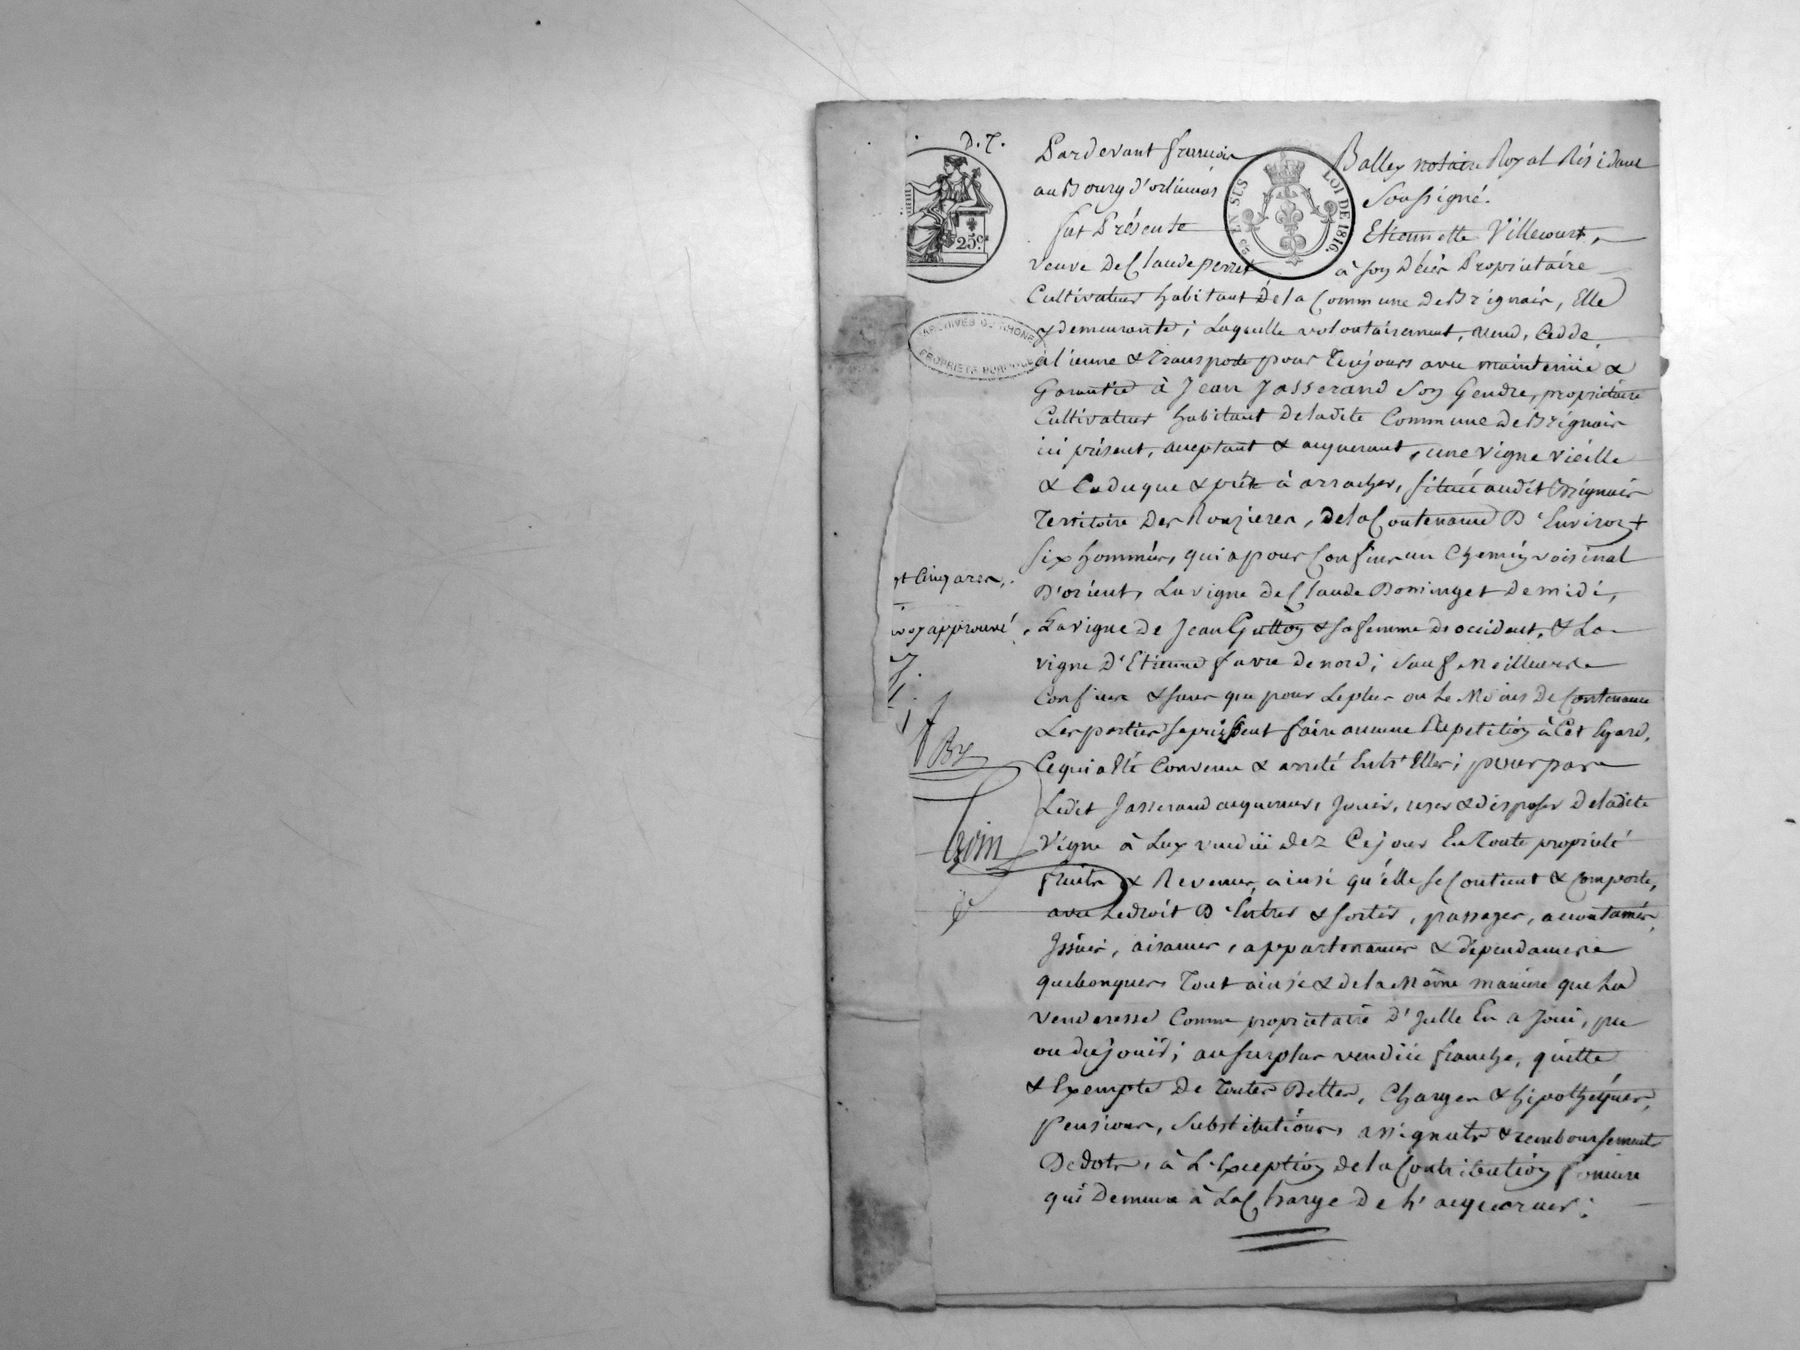 D. T.
Pardevant françois Balley notaire Royal Résidant
au Bourg d'orliénas Soussigné.
fut Présente Etiennette Villecourt,
veuve de Claude perret à son décès Propriétaire
Cultivateur habitant de la Commune de Brignais, Elle
y demeurante; Laquelle volontairement, vend, Cedde,
alienne & Transporte pour Toujours avec maintenüe &
Garantie à Jean Jasserand son Gendre, propriétaire
Cultivateur habitant de ladite Commune de Brignais
ici présent, acceptant & acquerant, une vigne vieille
& Caduque & prête à arracher, située audit Brignais
Territoire des Rouzieres, de la Contenance D'Environ +
six hommées, qui a pour Confins un Chemin voisinal
D'orient, La vigne de Claude Dominget de midi,
La vigne de Jean Gutton & sa femme d'occident, & La
vigne d'Etienne favre de nord; sauf Meilleurs
Confins & sans que pour Le plus ou Le Moins de Contenance
Les parties se puissent faire aucune Repetition à Cet Egard,
Ce qui a Eté Convenu & arreté Entr'Elles; pour par
Ledit Jasserand acquereur, Jouir, user & disposer de ladite
Vigne à Luy vendüe dez Ce jour En Toute propriété
fruits & Revenus, ainsi qu'elle se Contient & Comporte,
avec Le droit D'Entrer & sortir, passages, accoutumés,
Issües, aisances, appartenances & dépendances
quelconques Tout ainsi & de la Même manière que La
venderesse Comme propriétaire d'Icelle En a Joui, pu
ou du jouir; au surplus vendüe franche, quitte
& Exempte De Toutes Dettes, Charges & hipothéques,
pensions, Substitutions, assignats & remboursements
De dots, à L'Exception de la Contribution fonciere
qui Demeure à La Charge de L'acquereur;
25 c.
LOI DE 1816.
EN SUS
ARCHIVES DU RHONE
PROPRIÉTÉ PUBLIQUE
et Cinq ares,
approuvé
By